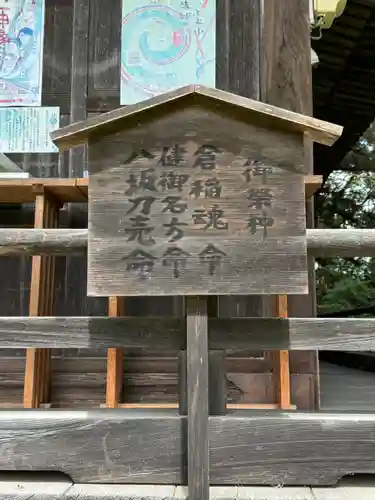 御祭神
倉稲魂命
健御名方命
八坂刀売命